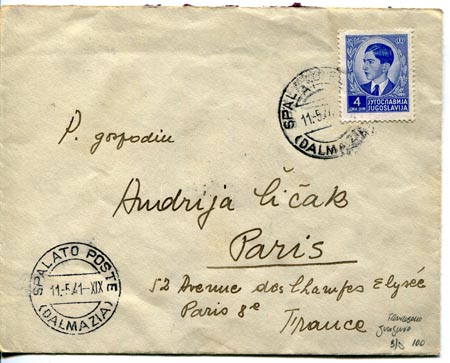 4
ЈУГОСЛАВИЈА
JUGOSLAVIJA
SPALATO
11.5.41
(DALMAZIA)
P. gospodin
Andrija Ličak
Paris
52 Avenue des Champs Elysée
Paris 8e
France
SPALATO POSTE
11.5.41-XIX
(DALMAZIA)
100